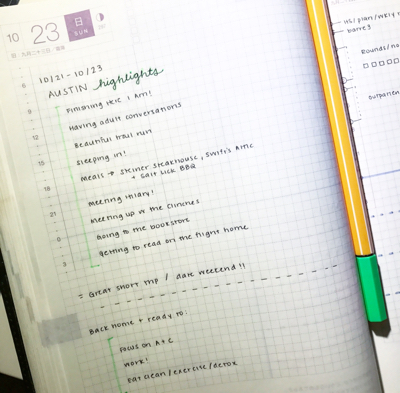 10 23 日
SUN
10/21-10/23
AUSTIN highlights
Finishing Here I Am!
Having adult conversations
Beautiful trail run
Sleeping in!
Meals → Steiner Steakhouse, Swift's Attic
+ Salt Lick BBQ
Meeting Hilary!
Meeting up w the Clinches
Going to the bookstore
Getting to read on the flight home
= Great short trip / date weekend!!
Back home + ready to:
Focus on A + C
Work!
Eat clean/exercise/detox
8
9
12
15
18
21
0
3
barre
Rounds/
outpatien